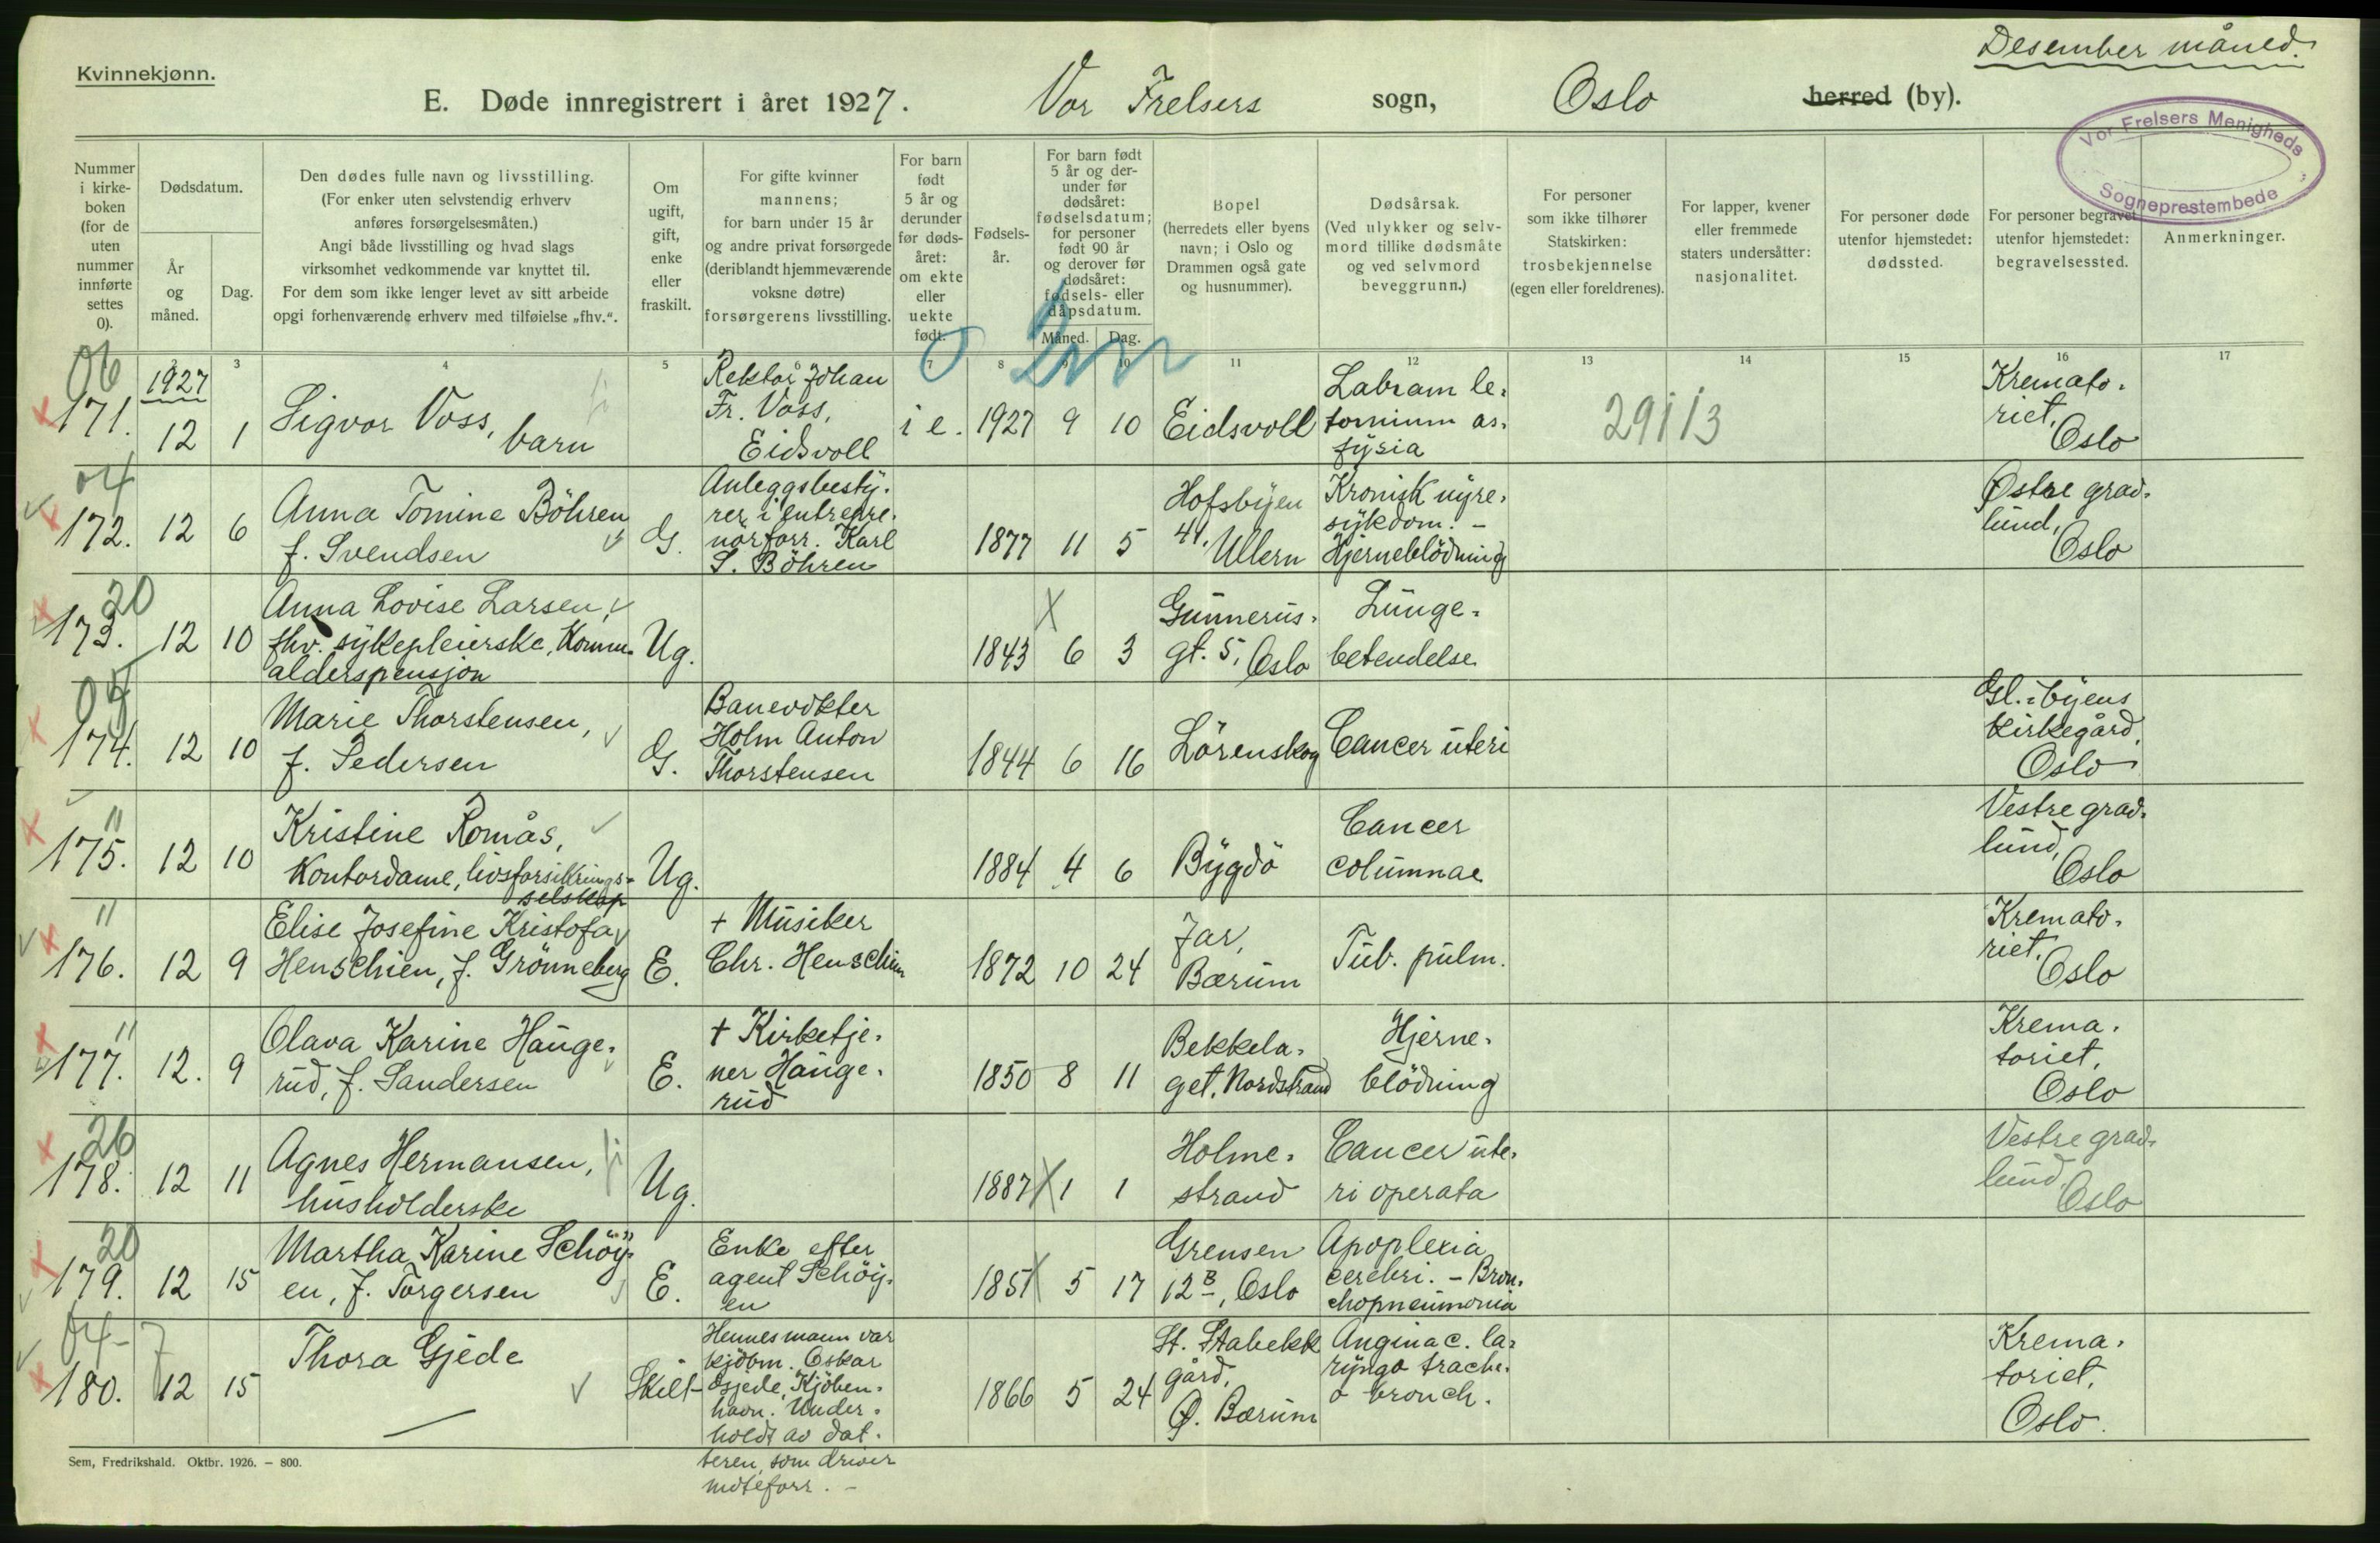 Desember måned.
Kvinnekjønn.
E. Døde innregistrert i året 1927. Vor Frelsers sogn, Oslo herred (by).
Vor Frelsers Menigheds
Sogneprestembede
Nummer
i kirke-
boken
(for de
uten
nummer
innførte
settes
0).
Dødsdatum.
År
og
måned.
Dag.
Den dødes fulle navn og livsstilling.
(For enker uten selvstendig erhverv
anføres forsørgelsesmåten.)
Angi både livsstilling og hvad slags
virksomhet vedkommende var knyttet til.
For dem som ikke lenger levet av sitt arbeide
opgi forhenværende erhverv med tilføielse „fhv.“.
Om
ugift,
gift,
enke
eller
fraskilt.
For gifte kvinner
mannens;
for barn under 15 år
og andre privat forsørgede
(deriblandt hjemmeværende
voksne døtre)
forsørgerens livsstilling.
For barn
født
5 år og
derunder
før døds-
året:
om ekte
eller
uekte
født.
Fødsels-
år.
For barn født
5 år og der-
under før
dødsåret:
fødselsdatum;
for personer
født 90 år
og derover før
dødsåret:
fødsels- eller
dåpsdatum.
Måned. Dag.
Bopel
(herredets eller byens
navn; i Oslo og
Drammen også gate
og husnummer).
Dødsårsak.
(Ved ulykker og selv-
mord tillike dødsmåte
og ved selvmord
beveggrunn.)
For personer
som ikke tilhører
Statskirken:
trosbekjennelse
(egen eller foreldrenes).
For lapper, kvener
eller fremmede
staters undersåtter:
nasjonalitet.
For personer døde
utenfor hjemstedet:
dødssted.
For personer begravet
utenfor hjemstedet:
begravelsessted.
Anmerkninger.
3 4 5 7 8 10 11 12 13 14 15 16 17
06
171.
1927
12 1
Sigvor Voss,
barn
Rektor Johan
Fr. Voss,
Eidsvoll
i e. 1927 9 10 Eidsvoll
Labram le-
tomium as-
fysia
29113
Kremato-
riet,
Oslo
04
172. 12 6
Anna Tomine Böhren
f. Svendsen
G.
Anleggsbesty-
rer i entrepre-
nörforr. Karl
S. Böhren
1877 11 5
Hofsbyen
41,
Ullern
Kronisk nyre-
sykdom. -
Hjerneblödning
Østre grav-
lund,
Oslo
20
173. 12 10
Anna Lovise Larsen,
fhv. sykepleierske, Komm.
alderspensjon
Ug.
1843 6 3
Gunnerus-
gt. 5, Oslo
Lunge-
betendelse
04
174. 12 10
Marie Thorstensen,
f. Pedersen
G.
Banevokter
Holm Anton
Thorstensen
1844 6 16
Lörenskog
Cancer uteri
Gl. byens
kirkegård,
Oslo
11
175. 12 10
Kristine Romås,
Kontordame, livsforsikrings-
selskap
Ug.
1884 4 6
Bygdö
Cancer
columnae
Vestre grav-
lund,
Oslo
11
176. 12 9
Elise Josefine Kristofa
Henschien, f. Grönneberg
E.
+ Musiker
Chr. Henschien
1872 10 24
Jar,
Bærum
Tub. pulm.
Kremato-
riet,
Oslo
11
177. 12. 9
Olava Karine Hauge-
rud, f. Sandersen
E.
+ Kirketje-
ner Hauge-
rud
1850 8 11
Bekkela-
get, Nordstrand
Hjerne-
blödning
Krema-
toriet,
Oslo
26
178. 12 11
Agnes Hermansen,
husholderske
Ug.
1887 1 1
Holme-
strand
Cancer ute-
ri operata
Vestre grav-
lund,
Oslo
20
179. 12 15
Martha Karine Schöy-
en, f. Torgersen
E.
Enke efter
agent Schöy-
en
1851 5 17
Grensen
12B, Oslo
Apoplexia
cerebri. - Bron-
chopneumonia
04-7
180. 12 15
Thora Gjede
Skilt
Hennes mann var
kjöbm. Oskar
Gjede, Kjöben-
havn. Under-
holdt av dat-
teren, som driver
moteforr. -
1866 5 24
St. Stabekk
gård,
Ø. Bærum
Angina c. la-
ryngo trache-
o bronch.
Krema-
toriet,
Oslo.
Sem, Fredrikshald. Oktbr. 1926. – 800.